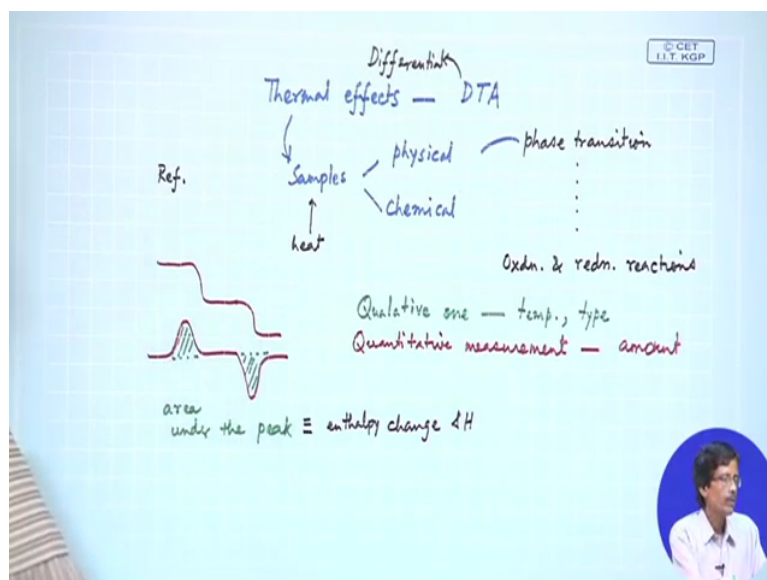 © CET
I.I.T. KGP
Differential
Thermal effects — DTA
physical
phase transition
Ref.
Samples
chemical
heat
Oxdn. & redn. reactions
Qualative one — temp., type
Quantitative measurement — amount
area
under the peak ≡ enthalpy change ΔH